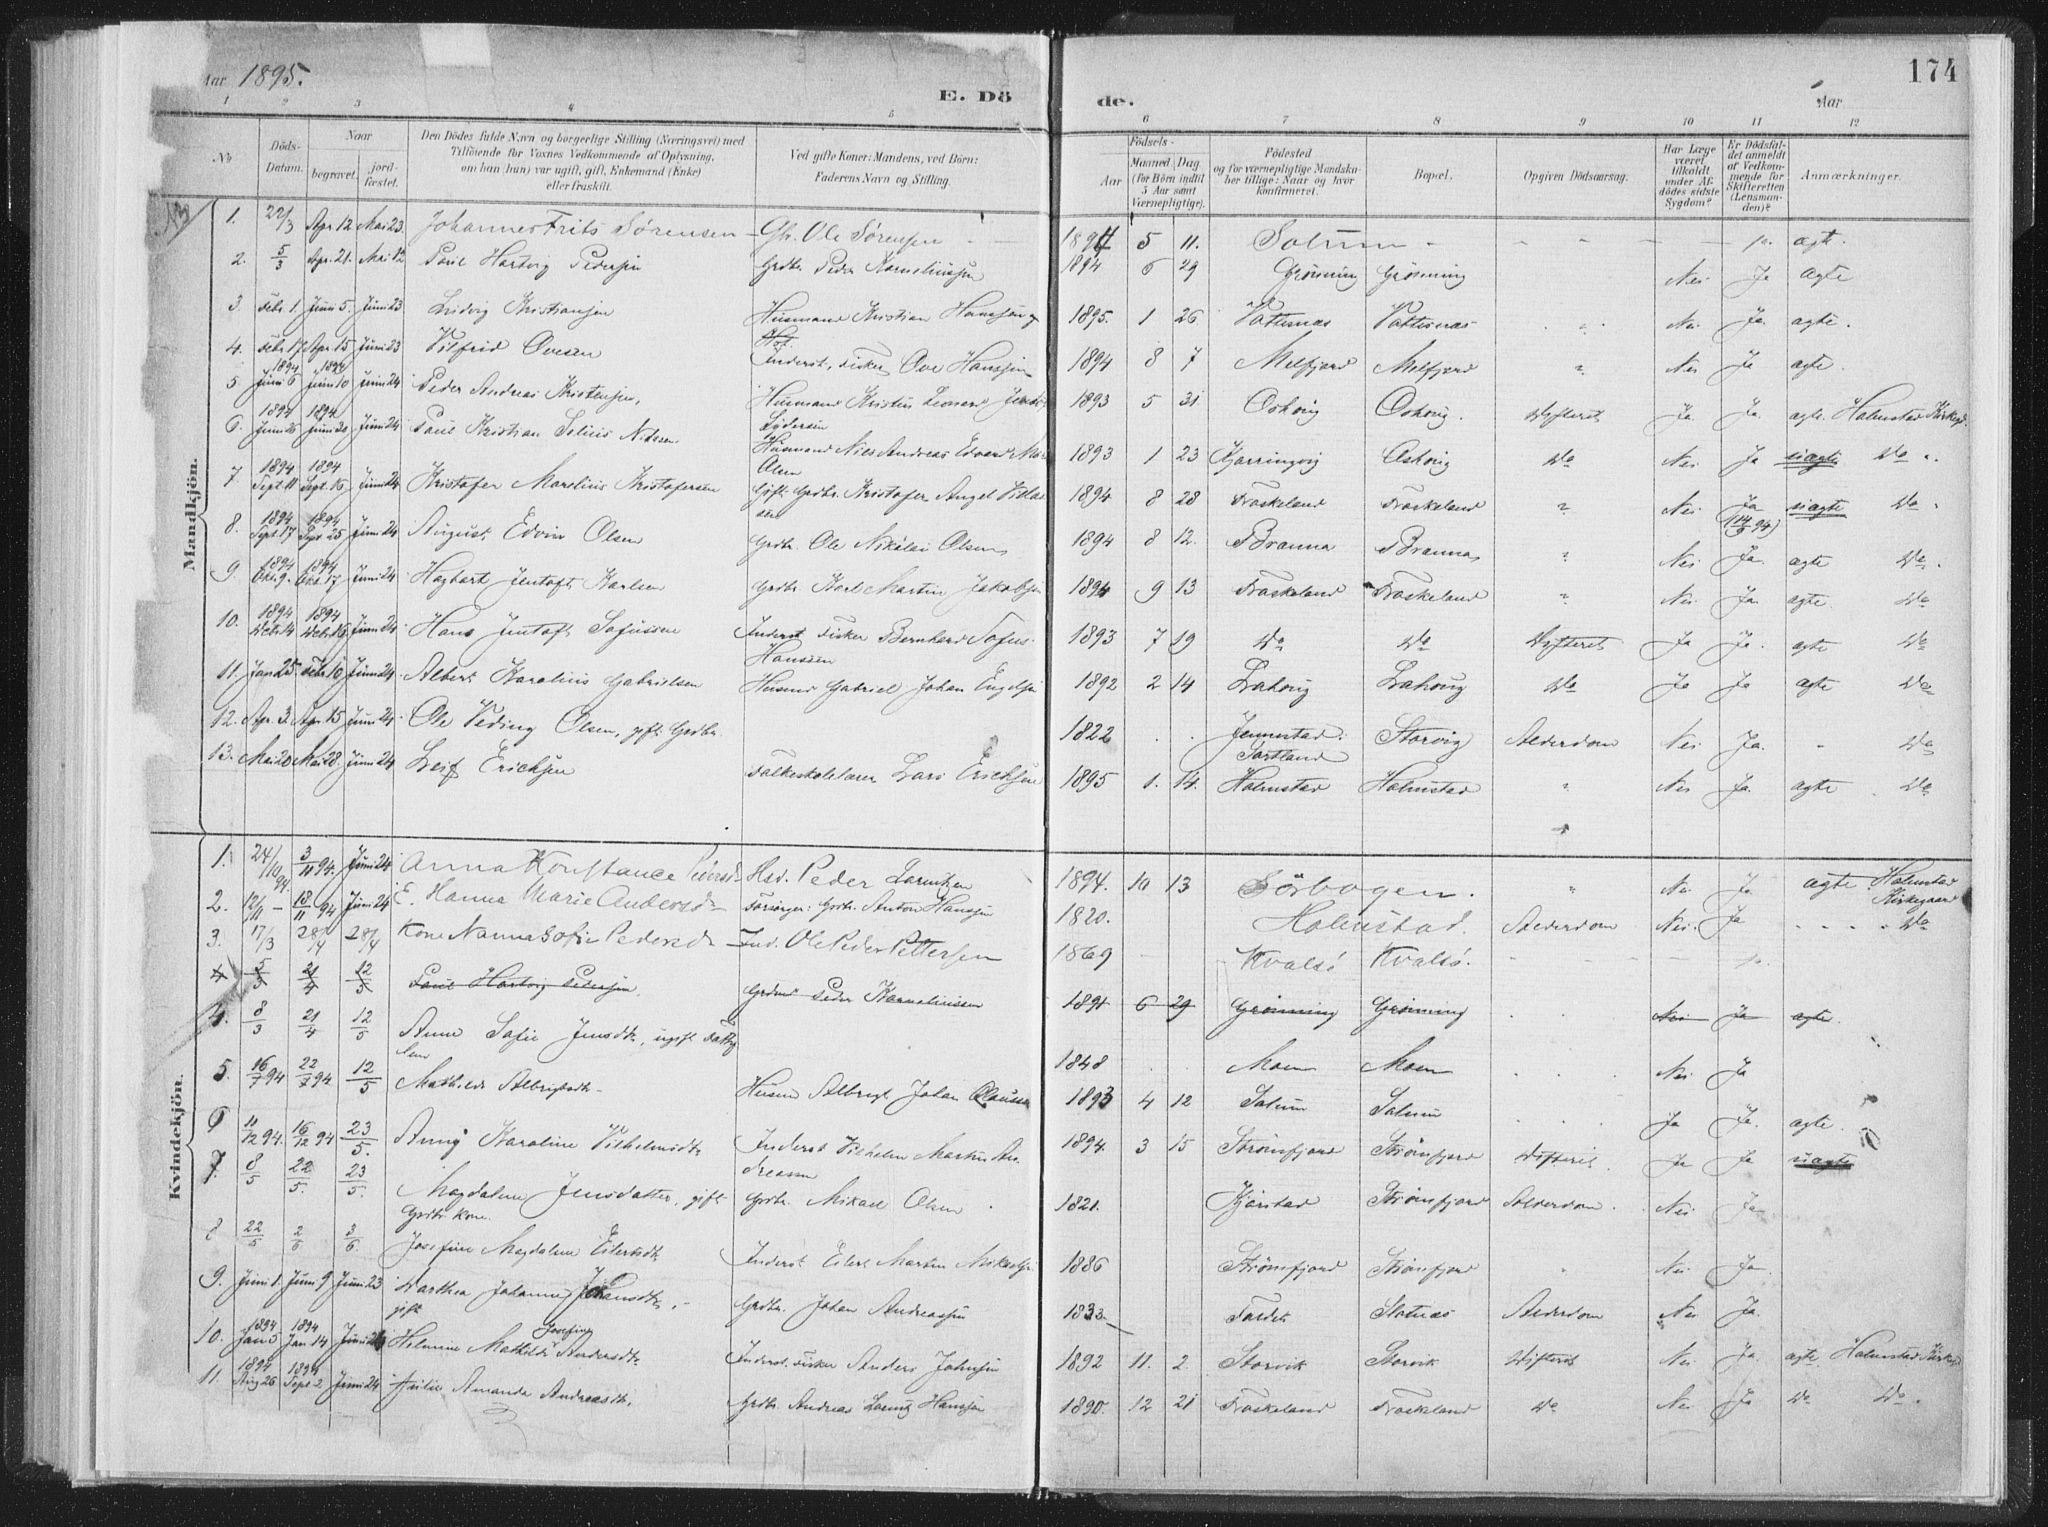 Aar 1895.
E. Dö
de.
Aar
174
1 2 3 4 5 6 7 8 9 10 11 12
No
Döds-Datum.
Naar
begravet.
jord-fæstet.
Den Dödes fulde Navn og borgerlige Stilling (Næringsvei) med
Tilföiende for Voxnes Vedkommende af Oplysning,
om han (hun) var ugift, gift, Enkemand (Enke)
eller fraskilt.
Ved gifte Koner: Mandens, ved Börn:
Faderens Navn og Stilling.
Födsels-
Aar
Maaned. Dag.
(for Börn indtil
5 Aar samt
Værnepligtige).
Födested
og for værnepligtige Mandska-
ber tillige: Naar og hvor
konfirmeret.
Bopæl.
Opgiven Dödsaarsag.
Har Læge
været
tilkaldt
under Af-
dödes sidste
Sygdom?
Er Dödsfal-
det anmeldt
af Vedkom-
mende for
Skifteretten
(Lensman-
den)?
Anmærkninger.
Mandkjön.
1. 22/3 Apr. 12 Mai 23. Johannes Frits Sørensen Gbr. Ole Sørensen 1894 5 11. Solum ja. ægte.
2. 5/3 Apr. 21. Mai 12 Paul Hartvig Pedersen Grdbr. Peder Korneliussen 1894 6 29 Grönning Grönning Nei Ja ægte
3. Febr 1. Juni 5. Juni 23 Ludvig Kristiansen Husmand Kristian Hanssen 1895. 1 26 Vattesnæs Vattesnæs Nei Ja. ægte.
4. Febr. 17 Apr. 15 Juni 23 Vilfrid Ovesen Inderst, Fisker Ove Hanssen 1894 8 7 Melfjord Melfjord " Nei Ja ægte.
5 1894 Juni 6 1894 Juni 10 Juni 24 Peder Andreas Kristensen, Husmand Kristen Leonard 1893 5 31. Oshoug Oshoug. Difterit Ja Ja. ægte. Holmstad Kirkegd.
6. 1894 Juni 25 1894 Juni 20 Juni 24 Paul Kristian Nilssen Husmand Nils Andreas Edvard
Olsen 1893 1 23 Kjørringvig Oshoug Do Nei Ja uægte Do ".
7 1894 Sept. 11 1894 Sept. 16 Juni 24 Kristofer Marelius Kristofersen Gift. Grdbr. Kristofer Angel 1894 8 28 Froskeland Froskeland " Nei Ja uægte Do.
8. 1894 Sept. 17 1894 Sept. 25 Juni 24 August Edvin Olsen Grdbr. Ole Nikolai Olsen 1894 8 12. Branna Branna " Nei Ja. ægte Do.
9. 1894 Okt. 9. 1894 Okt. 17 Juni 24 Hagbart Jentoft Karlsen Grdbr. Karl Martin Jakobsen 1894 9 13 Froskeland Froskeland " Nei Ja. ægte. Do
10. 1894 1894 Juni 24 Hans Jentoft Sofussen Inderst Fisker Bernhard Sofus
Hanssen 1893 7 19 Do Do Difterit Ja Ja. ægte Do
11. Jan 25. Febr. 10 Juni 24 Albert Karolius Gabrielsen Husmd Gabriel Johan 1892 2 14 Lahoug Lahoug Do Ja Ja ægte Do
12. Apr. 3. Apr. 15 Juni 24 Ole Olsen, gift Grdbr. 1822 . . Jennestad.
Sortland Storvig Alderdom Nei Ja. - Do
13. Mai 20 Mai 28. Juni 24 Leif Ericksen Folkeskolelærer Lars Ericksen 1895 1. 14. Holmstad Holmstad " Nei Ja. ægte . Do
Kvindekjön.
1. 24/10 94. 3/11 94. Juni 24 Anna Konstance Pedersd. Hsd. Peder Larntzen 1894. 10 13 Sörbogen. " Nei Ja ægte Holmstad
Kirkegaard
2. 12/11 - 18/11 94 Juni 24 E. Hanna Marie Andersd. Forsörger: Grdbr. Anton Hanssen 1820. Holmstad. Alderdom Nei. Ja . . . . Do
3. 17/3 28/4 28/4 Kone Nanna Sofie Pedersd. Ind. Ole Peder Pettersen 1869 Kvalsö Kvalsö. ja.
4 5/3 21/4 12/5 Paul Hartvig Pedersen, Grdmd Peder Korneliussen 1894. 6 29 Grönning Grönning Nei Ja ægte.
4. 8/3 21/4 12/5 Anne Sofie Jensdtr, ugift Fattig-
lem 1848 . . Moen Moen Nei Ja
5. 16/7 94 22/7 94. 12/5 Mathilde Albrigtsdtr. Husmd Albrigt Johan Claussen 1893 4 12 Solum Solum Ja Ja. ægte.
6 11/12 94. 16/12 94 23/5. Anny Karoline Vilhelmsdtr Inderst Vilhelm Martin An-
dreassen 1894. 3 15 Strömfjord Strömfjord Difterit. Ja Ja uægte
7. 8/5 22/5. 23/5. Magdalene Jensdatter, gift
Grdbr Kone. Grdbr. Mikael Olsen 1821. Kjörstad Strömfjord Alderdom. Nei Ja
8 22/5 2/6 3/6. Josefine Magdalene Eilertsdtr Inderst Eilert Martin Mikaelsen 1886 Strömfjord Strömfjord " Nei Ja.
9. Juni 1. Juni 9 Juni 23 Marthea Johanna Johansdtr,
gift Grdbr. Johan Andreassen 1833 Slotnæs Alderdom Nei Ja.
10. 1894 Jan 5 1894 Jan 14 Juni 24 Helmine Mathilde Josefine Andersdtr. Inderst. Fisker Anders Johnsen 1892 11. 2. Storvik Storvik Difterit Nei Ja. ægte. Holmstad Kirkegd
11. 1894 Aug 26 1894 Sept 2 Juni 24 Julie Amanda Andreasdtr. Grdbr. Andreas Lorentz Hanssen 1890. 12 21 Froskeland Froskeland Do Nei Ja Do Do.